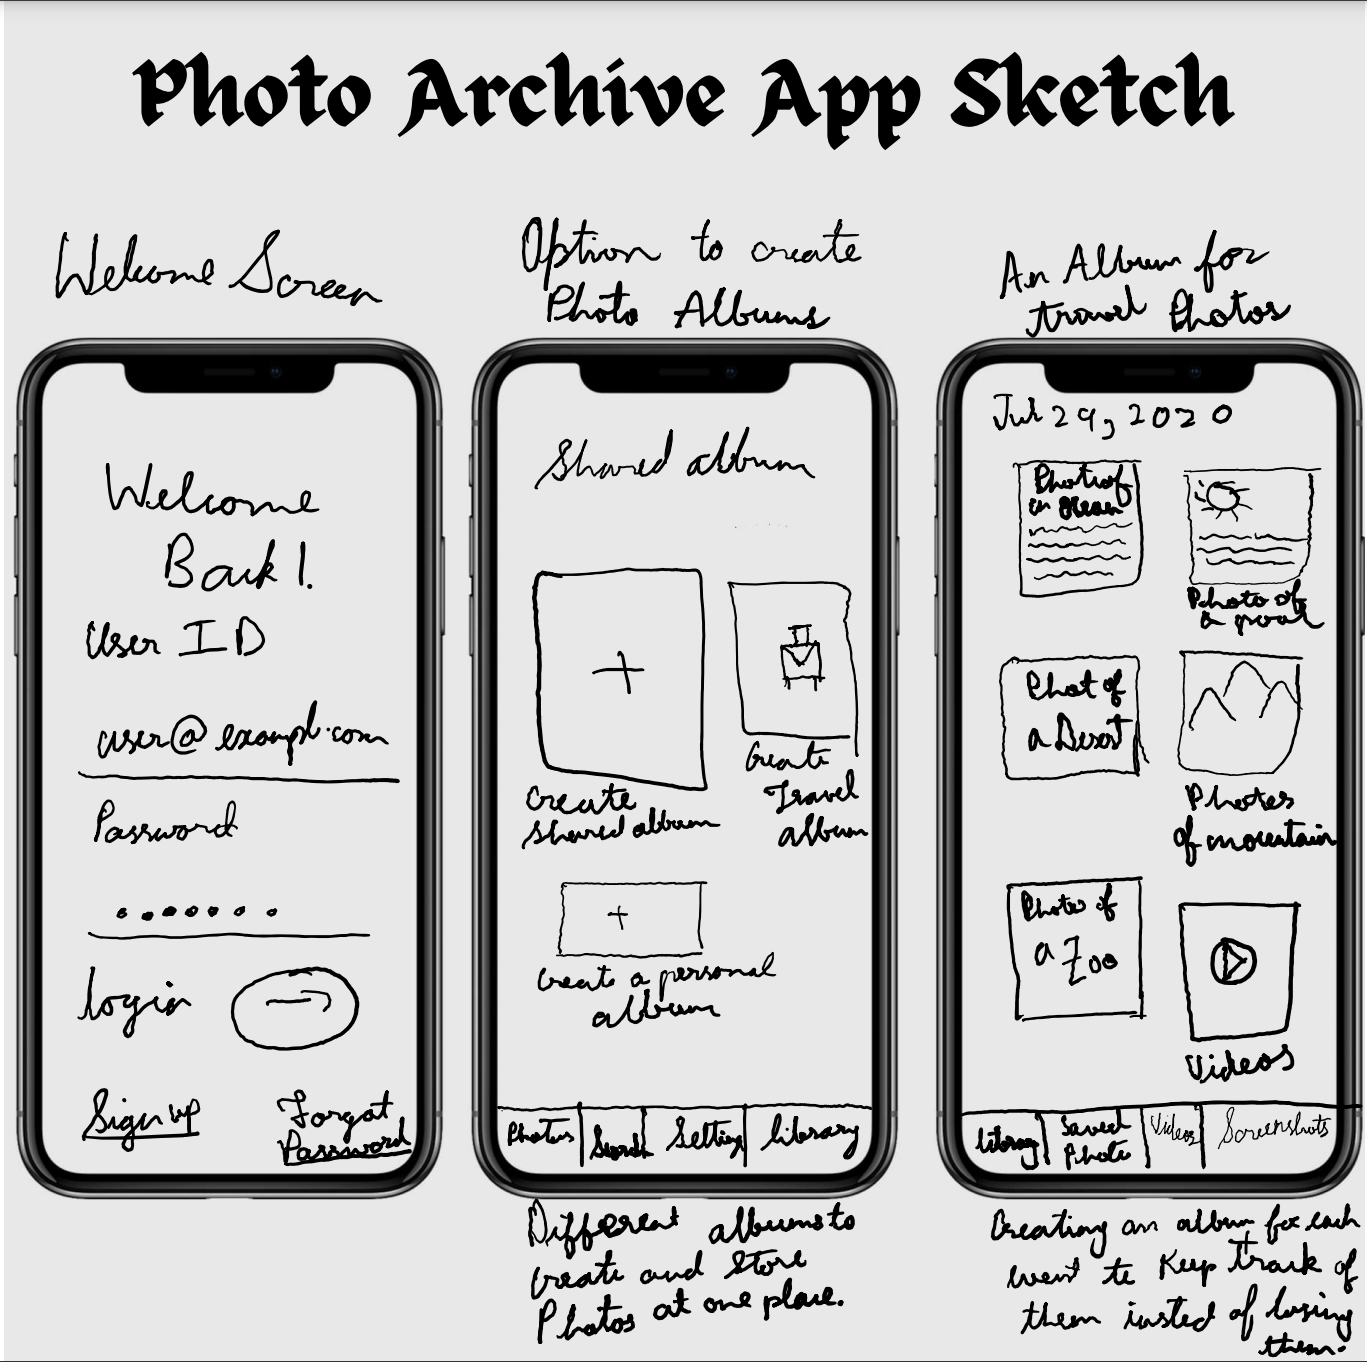 Photo Archive App Sketch
Welcome Screen
Welcome
Back!
User ID
user@exampl.com
Password
login
Sign up
Forgot
Password
Option to create
Photo Albums
Shared album
Create
shared album
Create
Travel
album
Create a personal
album
Photos
Search
Setting
library
Different albums to
create and store
Photos at one place.
An Album for
travel Photos
29, 2020
Photo of
Photo of
a
Phot of
a Desert
Photos
of mountain
Photo of
a Zoo
Videos
library
Saved
Photo
Videos
Screenshots
Creating an album for each
event to Keep Track of
them insted of losing
them.